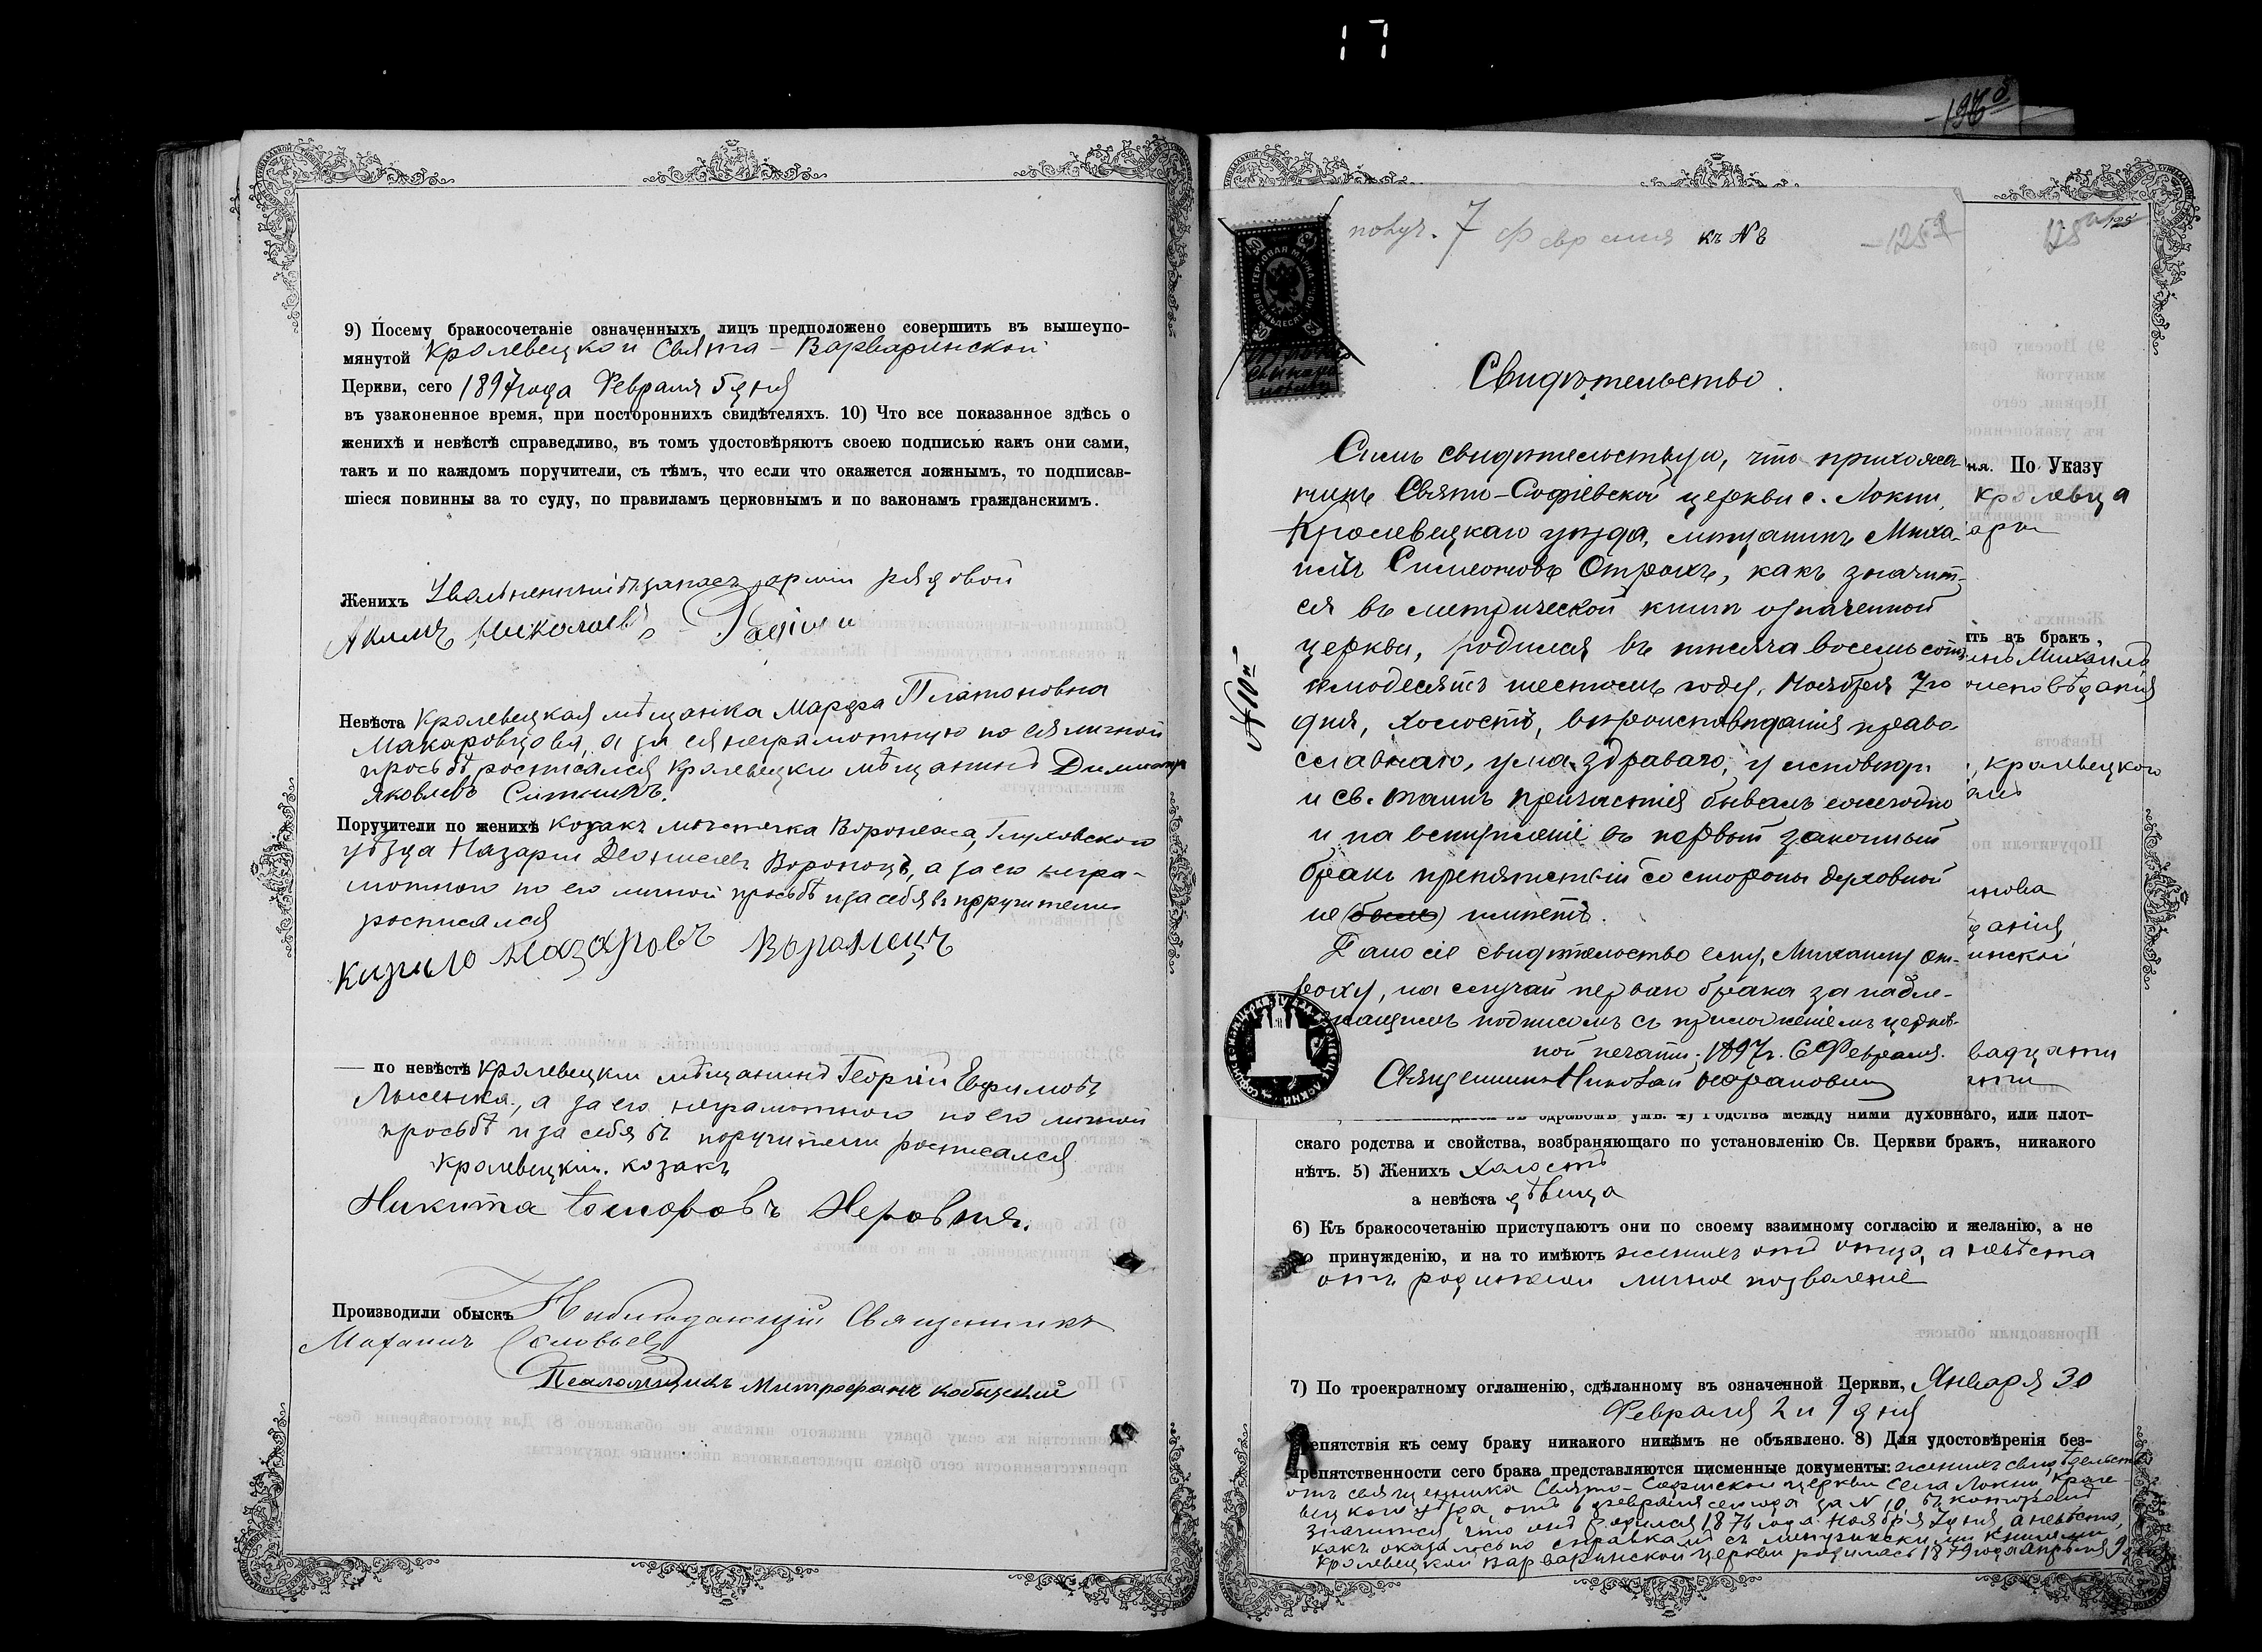 17
9) Посему бракосочетаніе означенныхъ лицъ предположено совершить въ вышеупо-
мянутой Кролевецкой Свято-Варваринской
Церкви, сего 1897 года Февраля 5 дня
въ узаконенное время, при постороннихъ свидѣтеляхъ. 10) Что все показанное здѣсь о
женихѣ и невѣстѣ справедливо, въ томъ удостовѣряютъ своею подписью какъ они сами,
такъ и по каждомъ поручители, съ тѣмъ, что если что окажется ложнымъ, то подписав-
шіеся повинны за то суду, по правиламъ церковнымъ и по законамъ гражданскимъ.
Женихъ Уволненный въ запасъ арміи рядовой
Акимъ Николаевъ
Невѣста Кролевецкая мѣщанка Марфа Платоновна
Макаровцова, а за ея неграмотную по ея личной
просьбѣ росписался Кролевецкій мѣщанинъ Димитрій
Яковлевъ Ситникъ.
Поручители по женихѣ козакъ мѣстечка Воронежа, Глуховского
уѣзда Назарій Діонисіевъ Воронецъ, а за его негра-
мотного по его личной просьбѣ и за себя въ поручители
росписался
Кирило Назаровъ Воронецъ
по невѣстѣ Кролевецкій мѣщанинъ Георгій Евфимовъ
Лысенко, а за его неграмотного по его личной
просьбѣ и за себя въ поручители росписался
Кролевецкій козакъ
Никита Неровня.
Производили обыскъ Наблюдающій Священникъ
Соловьевъ
Псаломщикъ Митрофанъ
-1968
получ. 7 Февраля къ №
-125
125
Свидѣтельство.
Симъ свидѣтельствую, что прихожа-
нинъ Свято-Софіевской церкви с. Локни,
Кролевецкаго уѣзда, мѣщанинъ Миха-
илъ Симеоновъ Отрохъ, какъ значит-
ся въ метрической книгѣ означенной
церкви, родился въ тысяча восемьсотъ
семьдесятъ шестомъ году, Ноября 7го
дня, холостъ, вѣроисповѣданія право-
славнаго, ума здраваго, у исповѣди
и св. таинъ причастія бывалъ ежегодно
и на вступленіе въ первый законный
бракъ препятствій со стороны духовной
не (было) имѣетъ.
Дано сіе свидѣтельство ему, Михаилу От-
роху, на случай перваго брака за надле-
жащимъ подписомъ съ приложеніемъ церков-
ной печати. 1897 г. 6 Февраля.
Священникъ Николай
№ 10й
ня. По Указу
Кролевца
ить въ бракъ,
Михаилъ
оисповѣданія
, Кролевецкого
здравомъ умѣ. 4) Родства между ними духовнаго, или плот-
скаго родства и свойства, возбраняющаго по установленію Св. Церкви бракъ, никакого
нѣтъ. 5) Женихъ холостъ
а невѣста дѣвица
6) Къ бракосочетанію приступаютъ они по своему взаимному согласію и желанію, а не
по принужденію, и на то имѣютъ женихъ отъ отца, а невѣста
отъ родителей личное позволеніе
7) По троекратному оглашенію, сдѣланному въ означенной Церкви, Января 30
Февраля 2 и 9 дня
препятствія къ сему браку никакого никѣмъ не объявлено. 8) Для удостовѣренія без-
препятственности сего брака представляются писменные документы: женихъ свидѣтельство
отъ священника Свято-Софійской церкви села Локни, Кроле-
вецкого уѣзда, отъ 6 февраля сего года за № 10, въ которомъ
значится, что онъ родился 1876 года Ноября 7 дня, а невѣста,
какъ оказалось по справкамъ съ метрическими книгами
Кролевецкой Варваринской церкви родилась 1879 года Апрѣля 9